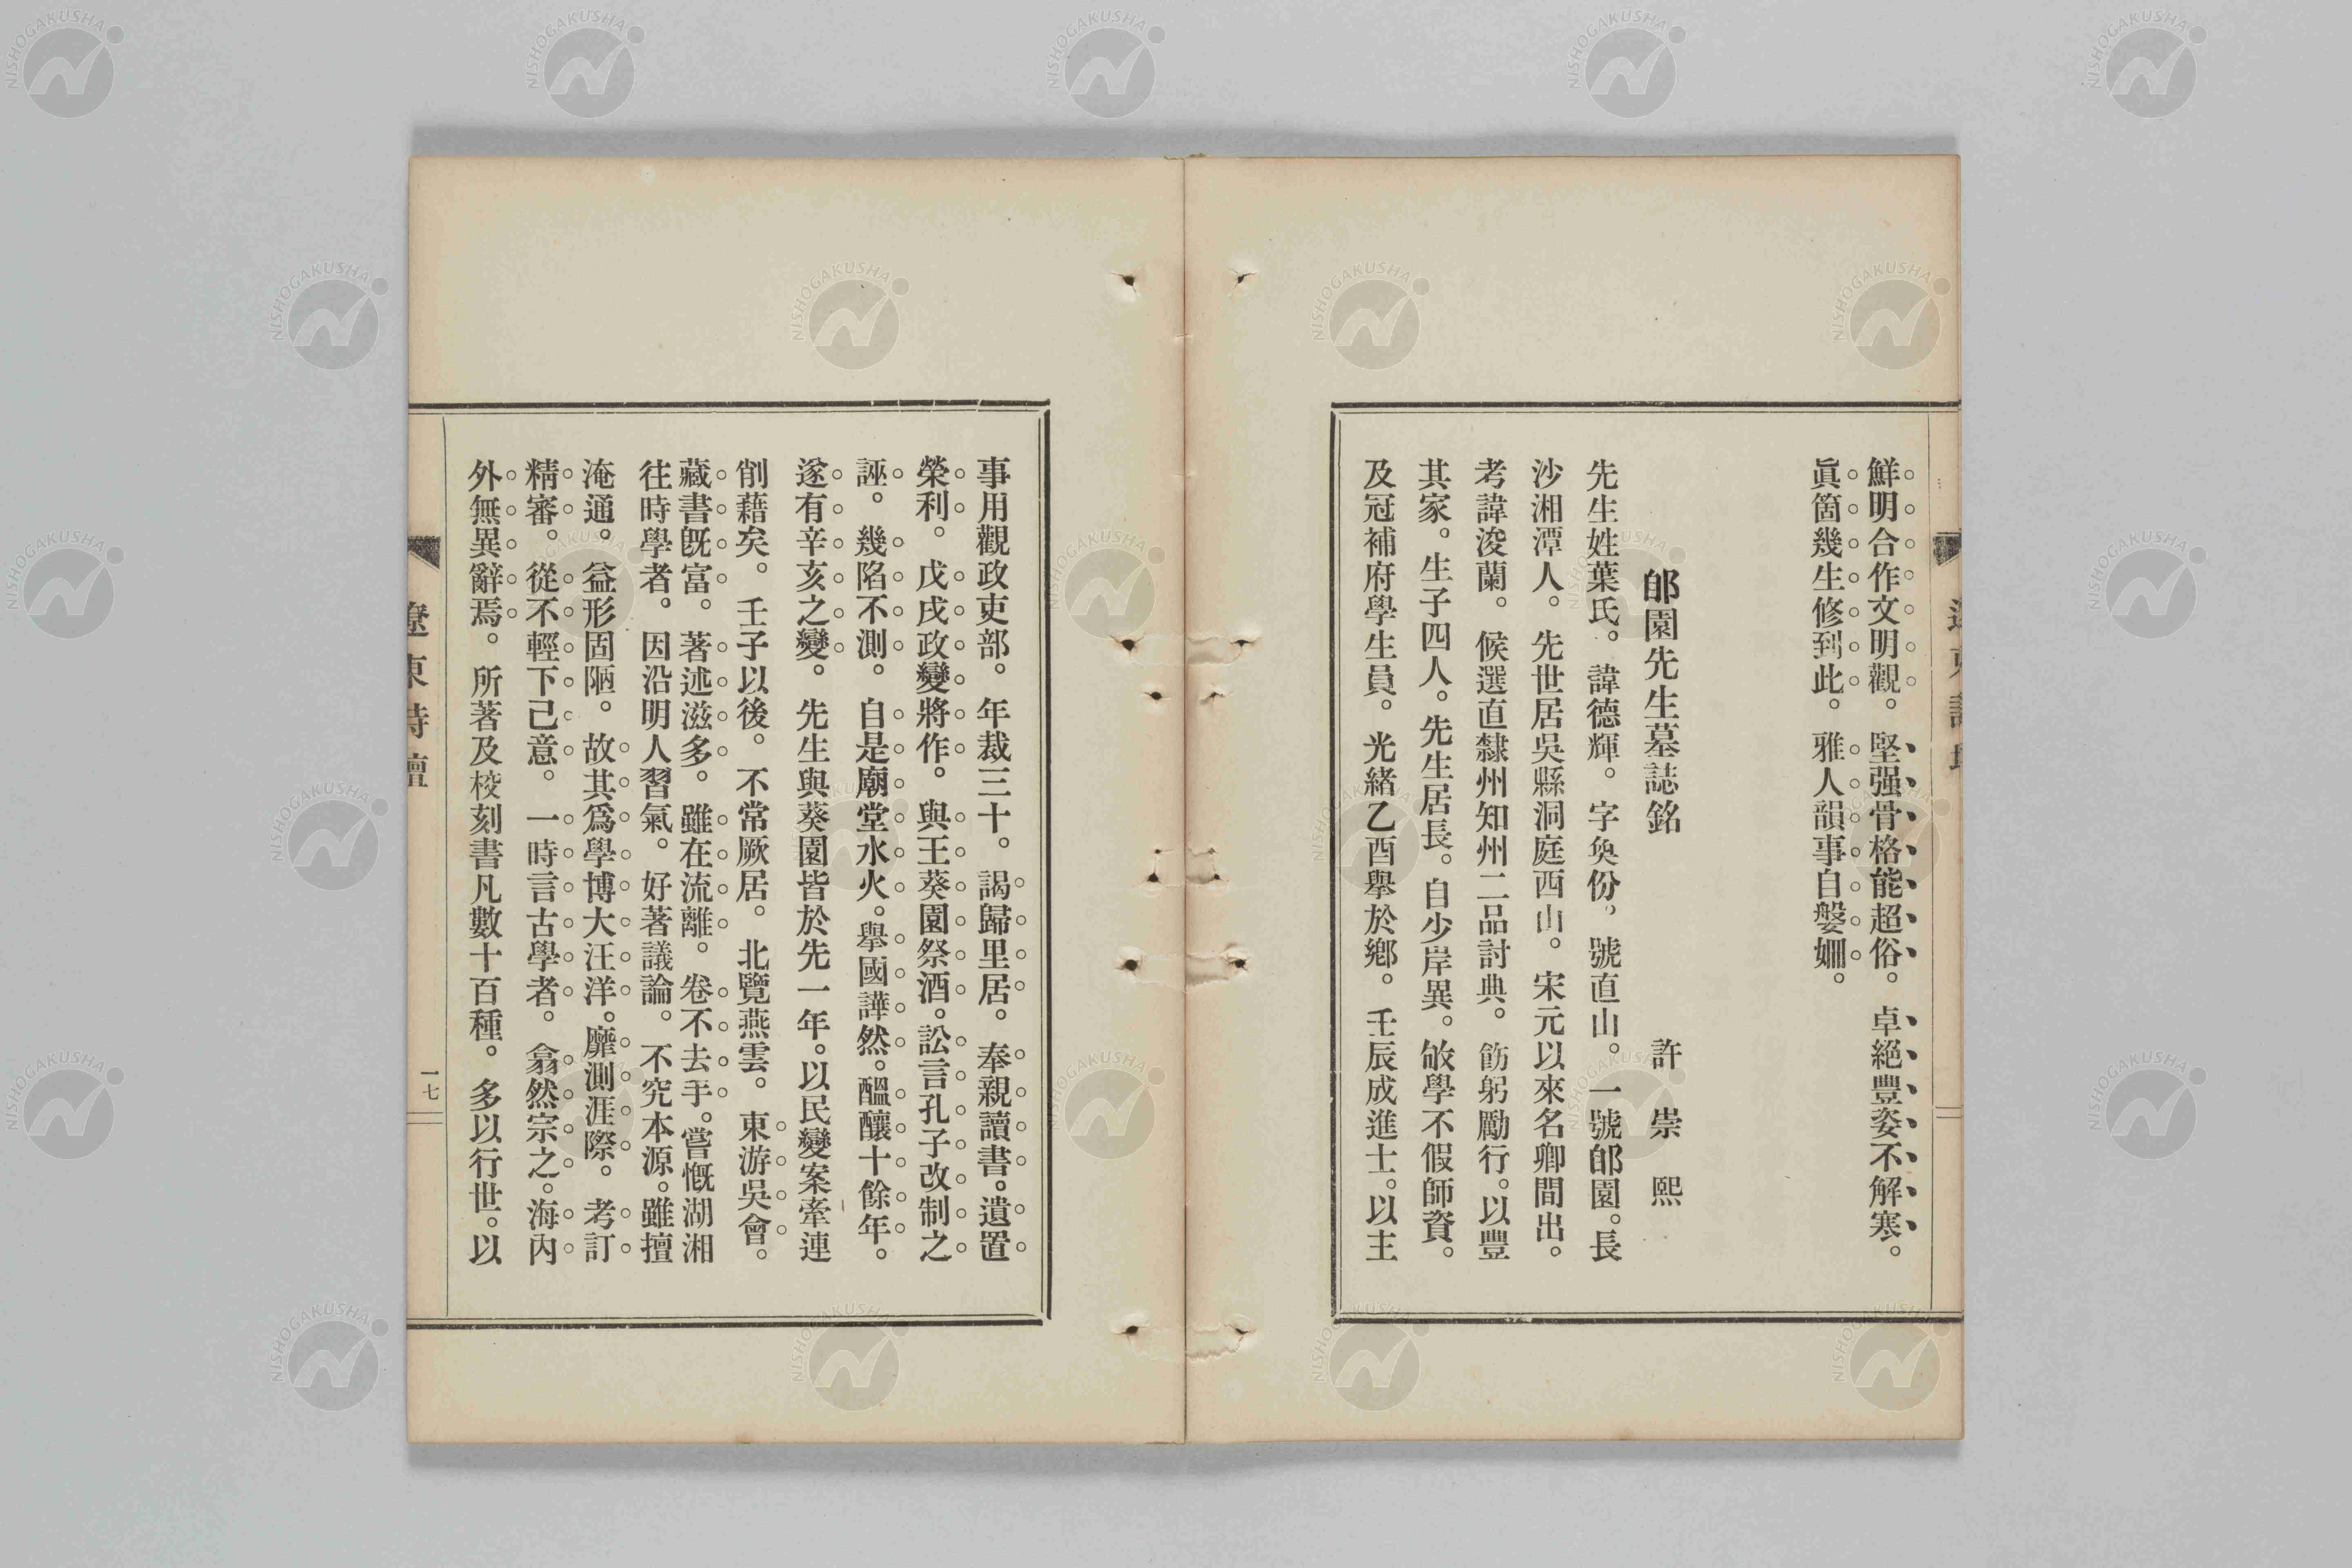 鮮明合作文明觀。堅强骨格能超俗。卓絕豐姿不解寒。
眞箇幾生修到此。雅人韻事自媻姍。
郋園先生墓誌銘　許崇熙
先生姓葉氏。諱德輝。字奐份，號直山。一號郋園。長
沙湘潭人。先世居吳縣洞庭西山。宋元以來名卿間出。
考諱浚蘭。候選直隸州知州二品討典。飭躬勵行。以豐
其家。生子四人。先生居長。自少岸異。敏學不假師資。
及冠補府學生員。光緒乙酉舉於鄕。壬辰成進士。以主
事用觀政吏部。年裁三十。謁歸里居。奉親讀書。遺置
榮利。戊戌政變將作。與王葵園祭酒。訟言孔子改制之
誣。幾陷不測。自是廟堂水火。舉國譁然。醞釀十餘年。
遂有辛亥之變。先生與葵園皆於先一年。以民變案牽連
削藉矣。壬子以後。不常厥居。北覽燕雲。東游吳會。
藏書旣富。著述滋多。雖在流離。卷不去手。嘗慨湖湘
往時學者。因沿明人習氣。好著議論。不究本源。雖擅
淹通。益形固陋。故其爲學博大汪洋。靡測涯際。考訂
精審。從不輕下己意。一時言古學者。翕然宗之。海內
外無異辭焉。所著及校刻書凡數十百種。多以行世。以
遼東詩壇
一七
NISHOGAKUSHA